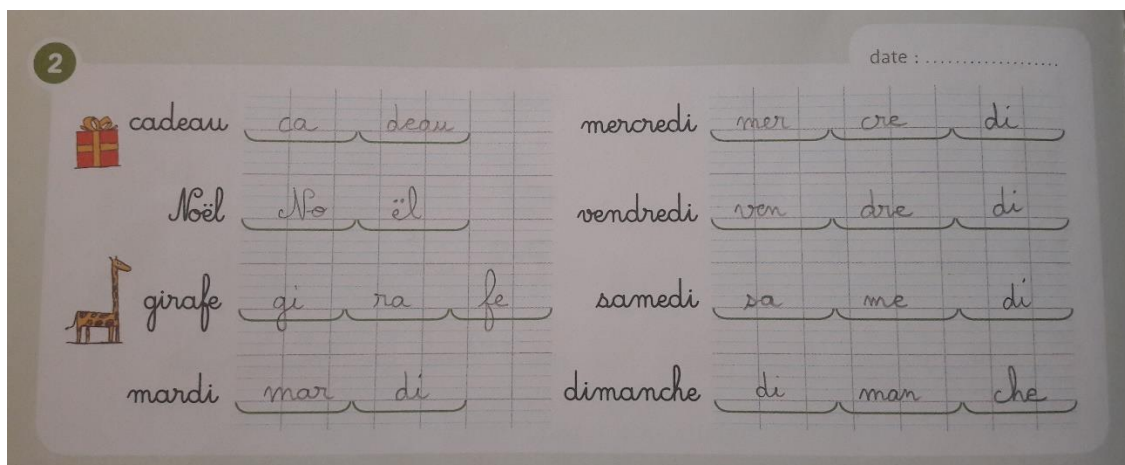 2
date : ...................
cadeau ca deau
Noël No ël
girafe gi ra fe
mardi mar di
mercredi mer cre di
vendredi ven dre di
samedi sa me di
dimanche di man che